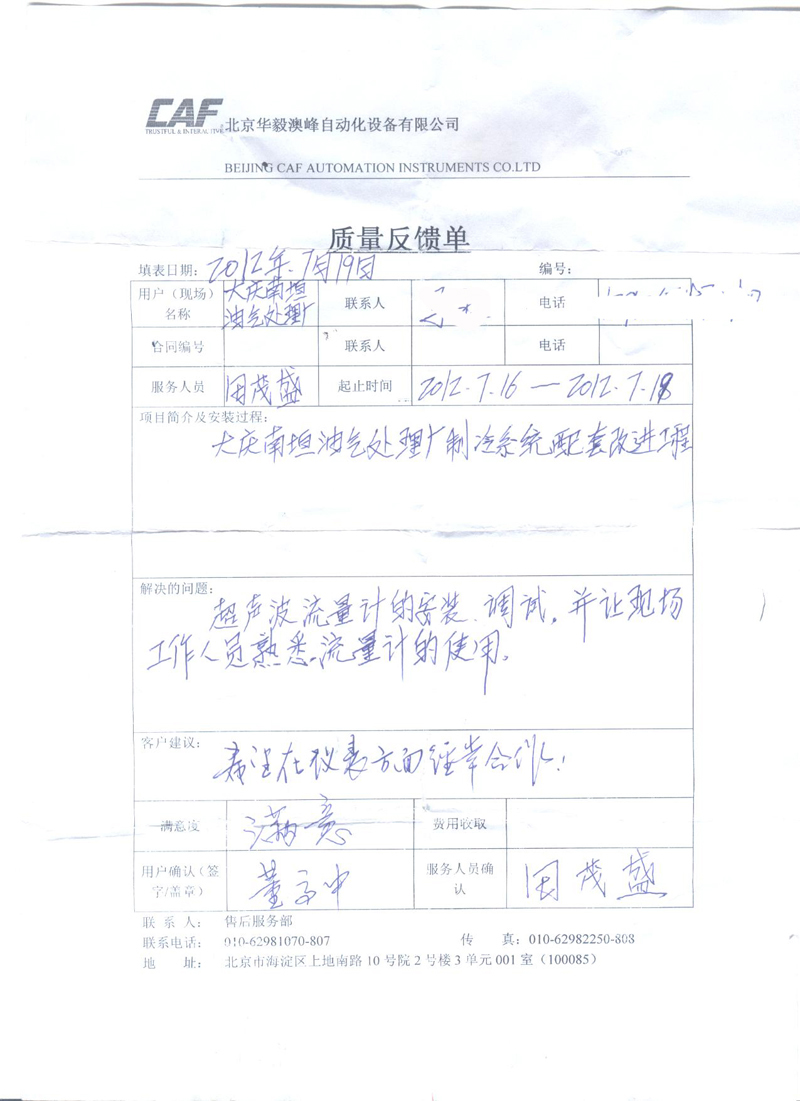 CAF
TRUSTFUL & INTERACTIVE
北京华毅澳峰自动化设备有限公司
BEIJING CAF AUTOMATION INSTRUMENTS CO.LTD
质量反馈单
填表日期: 2012年.7月19日 编号:
用户（现场）名称 大庆南垣油气处理厂 联系人 电话
合同编号 联系人 电话
服务人员 田茂盛 起止时间 2012.7.16 — 2012.7.18
项目简介及安装过程:
大庆南垣油气处理厂制冷系统配套改进工程
解决的问题:
超声波流量计的安装、调试，并让现场
工作人员熟悉流量计的使用。
客户建议:
希望在仪表方面经常合作！
满意度 满意 费用收取
用户确认（签字/盖章） 董 中 服务人员确认 田茂盛
联 系 人: 售后服务部
联系电话: 010-62981070-807 传 真: 010-62982250-808
地 址: 北京市海淀区上地南路 10 号院 2 号楼 3 单元 001 室（100085）